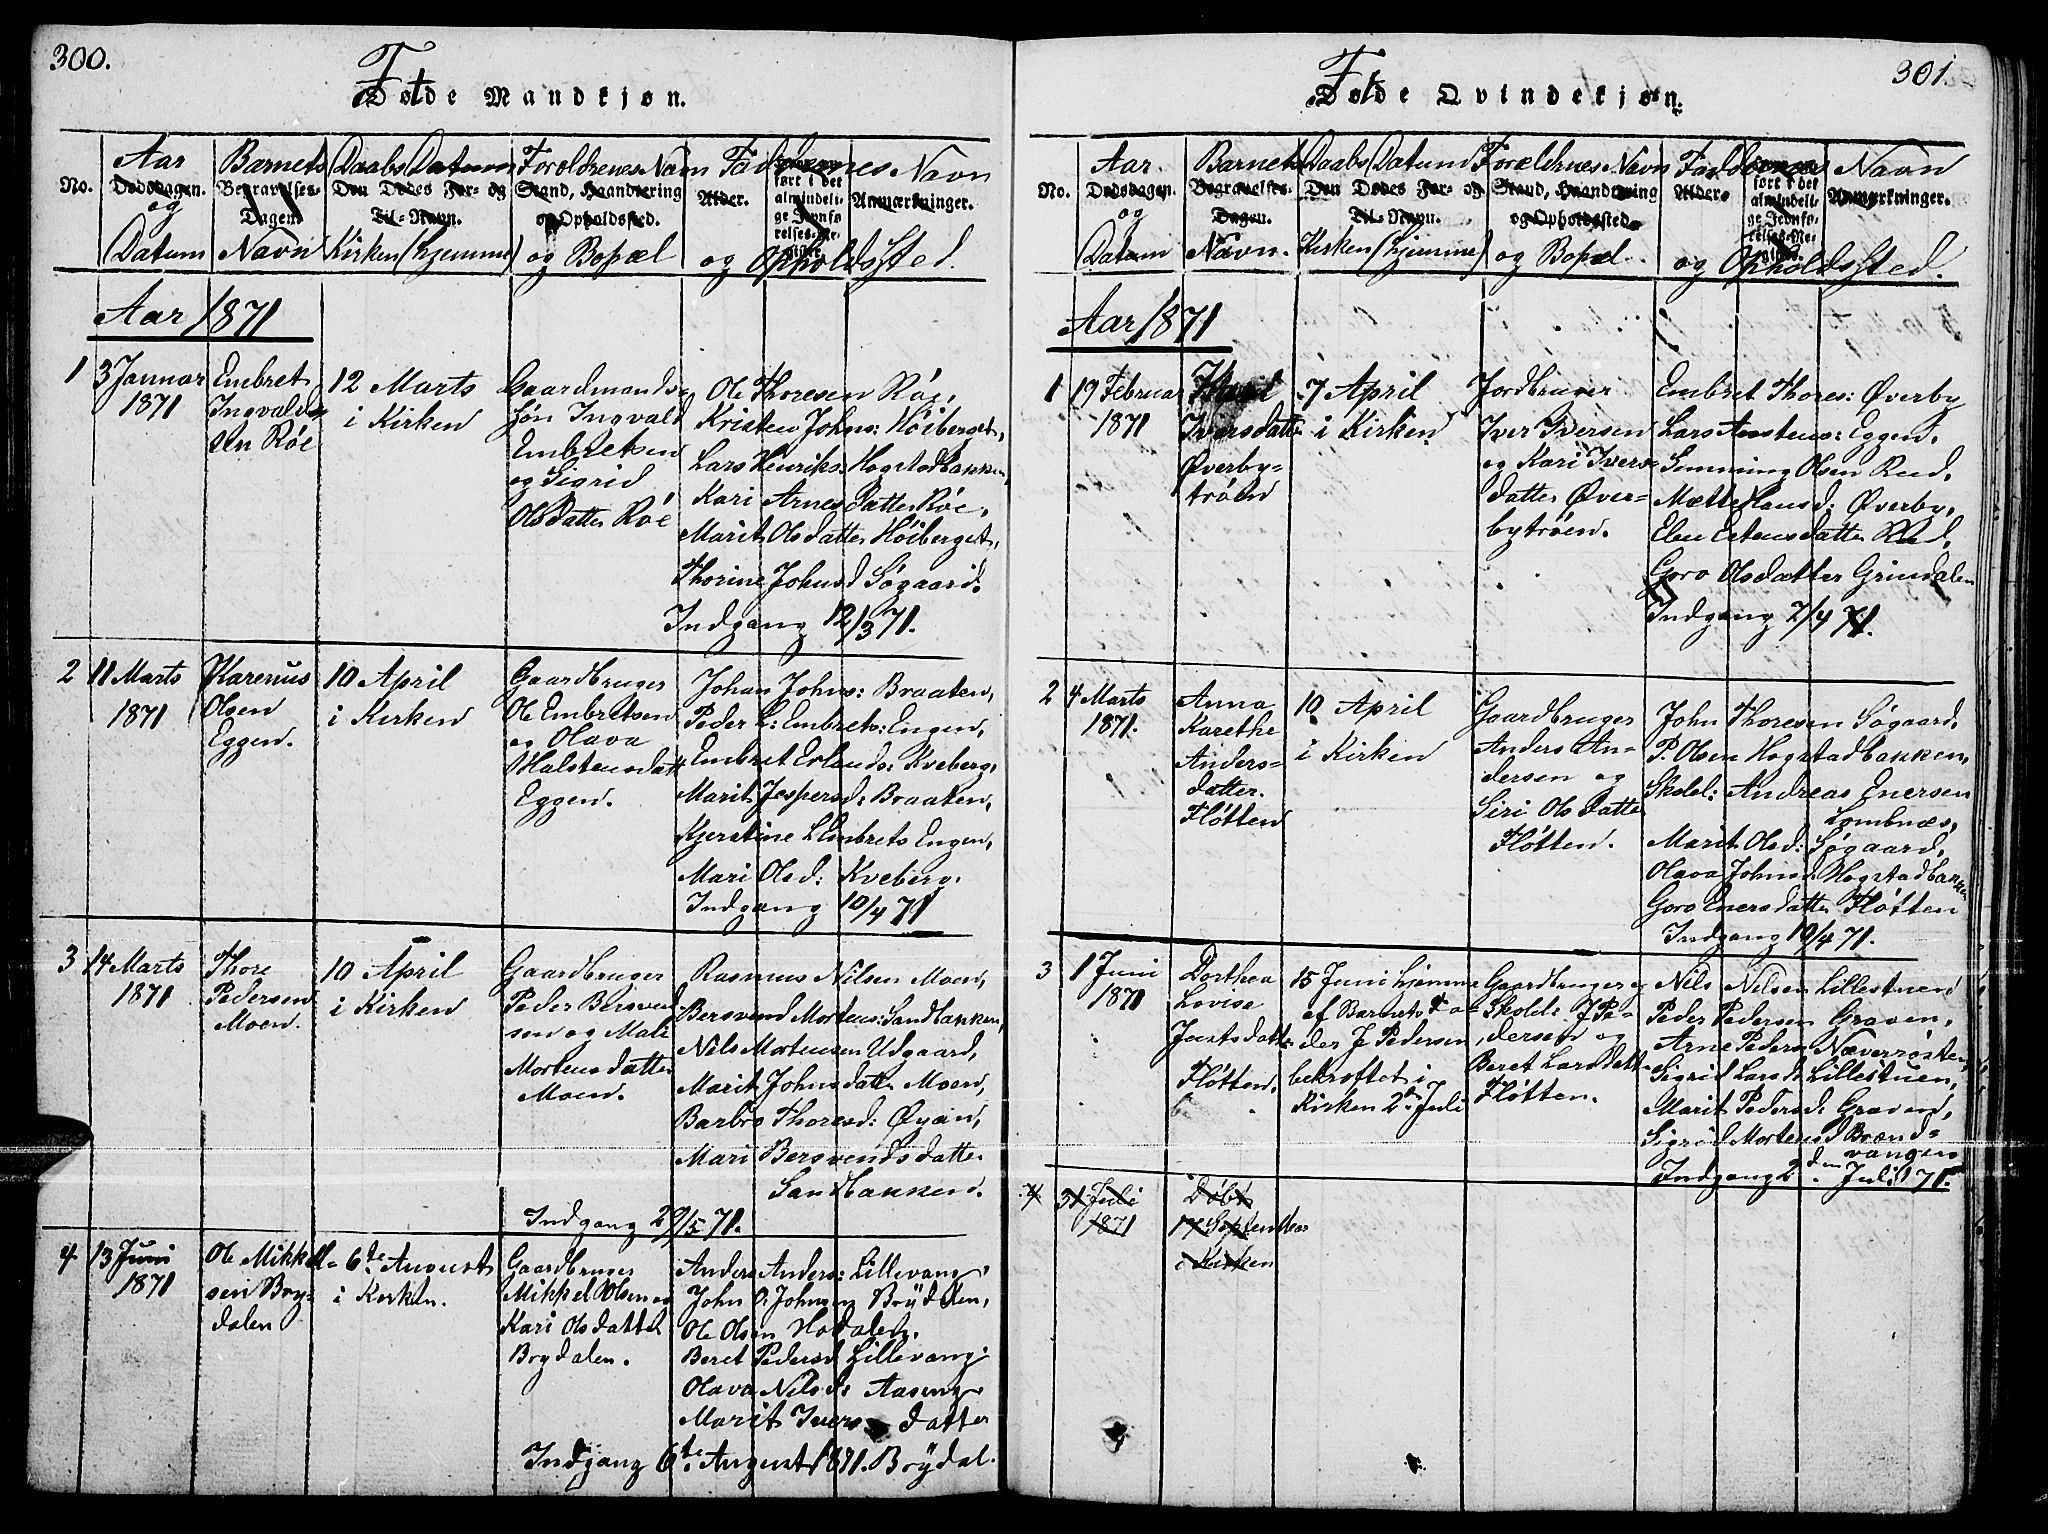 300.
Føde Mandkjøn.
No.
Aar
Dødsdagen.
og
Datum
Barnets
Begravelses-
Dagen.
Navn
Daabs Datum
Den Dødes For- og
Til-Navn.
Kirken (hjemme)
Forældrenes Navn
Stand, Haandtering
og Opholdssted.
og Bopæl
Faddernes Navn
Alder.
ført i det
almindeli-
ge Jevnfø-
relses-Re-
gister.
Anmærkninger.
og Opholdssted.
Aar 1871
1
3 Januar
1871
Embret
Ingvald-
sen Röe
12 Marts
i Kirken
Gaardmands-
søn Ingvald
Embretsen
og Sigrid
Olsdatter Röe
Ole Thoresen Röe,
Kristen Johns: Höiberget,
Lars Henriks: Hogstadbakken,
Kari Arnesdatter Röe,
Marit Olsdatter Höiberget,
Thorine Johnsd Søgaard.
Indgang 12/3 71.
2
11 Marts
1871
Karenus
Olsen
Eggen.
10 April
i Kirken
Gaardbruger
Ole Embretsen
og Olava
Halstensdatt
Eggen.
Johan Johns: Braaten,
Peder L: Embrets: Engen,
Embret Erlands: Kveberg,
Marit Jespersd: Braaten,
Kjerstine L Embrets Engen,
Mari Olsd: Kveberg.
Indgang 10/4 71
3
14 Marts
1871
Thore
Pedersen
Moen.
10 April
i Kirken
Gaardbruger
Peder Bersvend
sen og Mali
Mortensdatter
Moen.
Rasmus Nilsen Moen,
Bersvend Mortens: Sandbakken,
Nils Mortensen Udgaard,
Marit Johnsdatt Moen,
Barbro Thoresd: Øyan,
Mari Bersvendsdatter
Sandbakken.
Indgang 29/5 71.
4
13 Juni
1871
Ole Mikkel-
sen Bry-
dalen
6te August
i Kirken.
Gaardbruger
Mikkel Olsen og
Kari Olsdatter
Brydalen.
Anders Anders: Lillevang,
John O: Johnsen Brÿdalen,
Ole Olsen Hodalen,
Beret Pedersd Lillevang,
Olava Nilsd: Aaseng,
Marit Ivers datter
Indgang 6te August 1871. Brÿdal.
301.
Føde Qvindekjøn.
No.
Aar
Dødsdagen.
og
Datum
Barnets
Begravelses-
Dagen.
Navn.
Daabs Datum
Den Dødes For- og
Til-Navn.
Kirken (hjemme)
Forældrenes Navn
Stand, Haandtering
og Opholdssted.
og Bopæl.
Faddernes Navn
Alder.
ført i det
almindeli-
ge Jevnfø-
relses-Re-
gister.
Anmærkninger.
og Opholdssted.
Aar 1871
1
19 Februar
1871
Iversdatter
Øverby-
tröen
7 April
i Kirken
Jordbruger
Iver Iversen
og Kari Ivers-
datter Øver-
bytröen.
Embret Thores: Øverby
Lars Anstens: Eggen,
Semming Olsen Rud,
Mætte Hansd: Øverby,
Elen Estensdatter Rud,
Goro Olsdatter Grindalen
Indgang 7/4 71.
2
4 Marts
1871.
Anna
Karethe
Anders-
datter.
Fløtten
10 April
i Kirken
Gaardbruger
Anders An-
dersen og
Siri Olsdatter
Fløtten.
John Thoresen Søgaard,
P. Olsen Hogstadbakken,
Skolel: Andreas Enersen
Lombnæs,
Marit Olsd: Søgaard,
Olava Johnsd Hogstadbakken
Goro Enersdatter Fløtten
Indgang 10/4 71.
3
1 Juni
1871
Dorthea
Lovise
Jensdatter
Fløtten.
15 Juni hjemme
af Barnets Fa-
der J. Pedersen
bekræftet i
Kirken 2den Juli
Gaardbruger og
Skolel: J Pe-
dersen og
Beret Larsdatt
Fløtten.
Nils Nilsen Lillestuen
Peder Pedersen Graven,
Arne Peders: Næverrøsten,
Sigrid Larsd: Lillestuen,
Marit Pedersd: Graven,
Sigrid Mortensd Brænd-
vangen
Indgang 2den Juli 71.
4
31 Juli
1871
Døbt
17 September
i Kirken